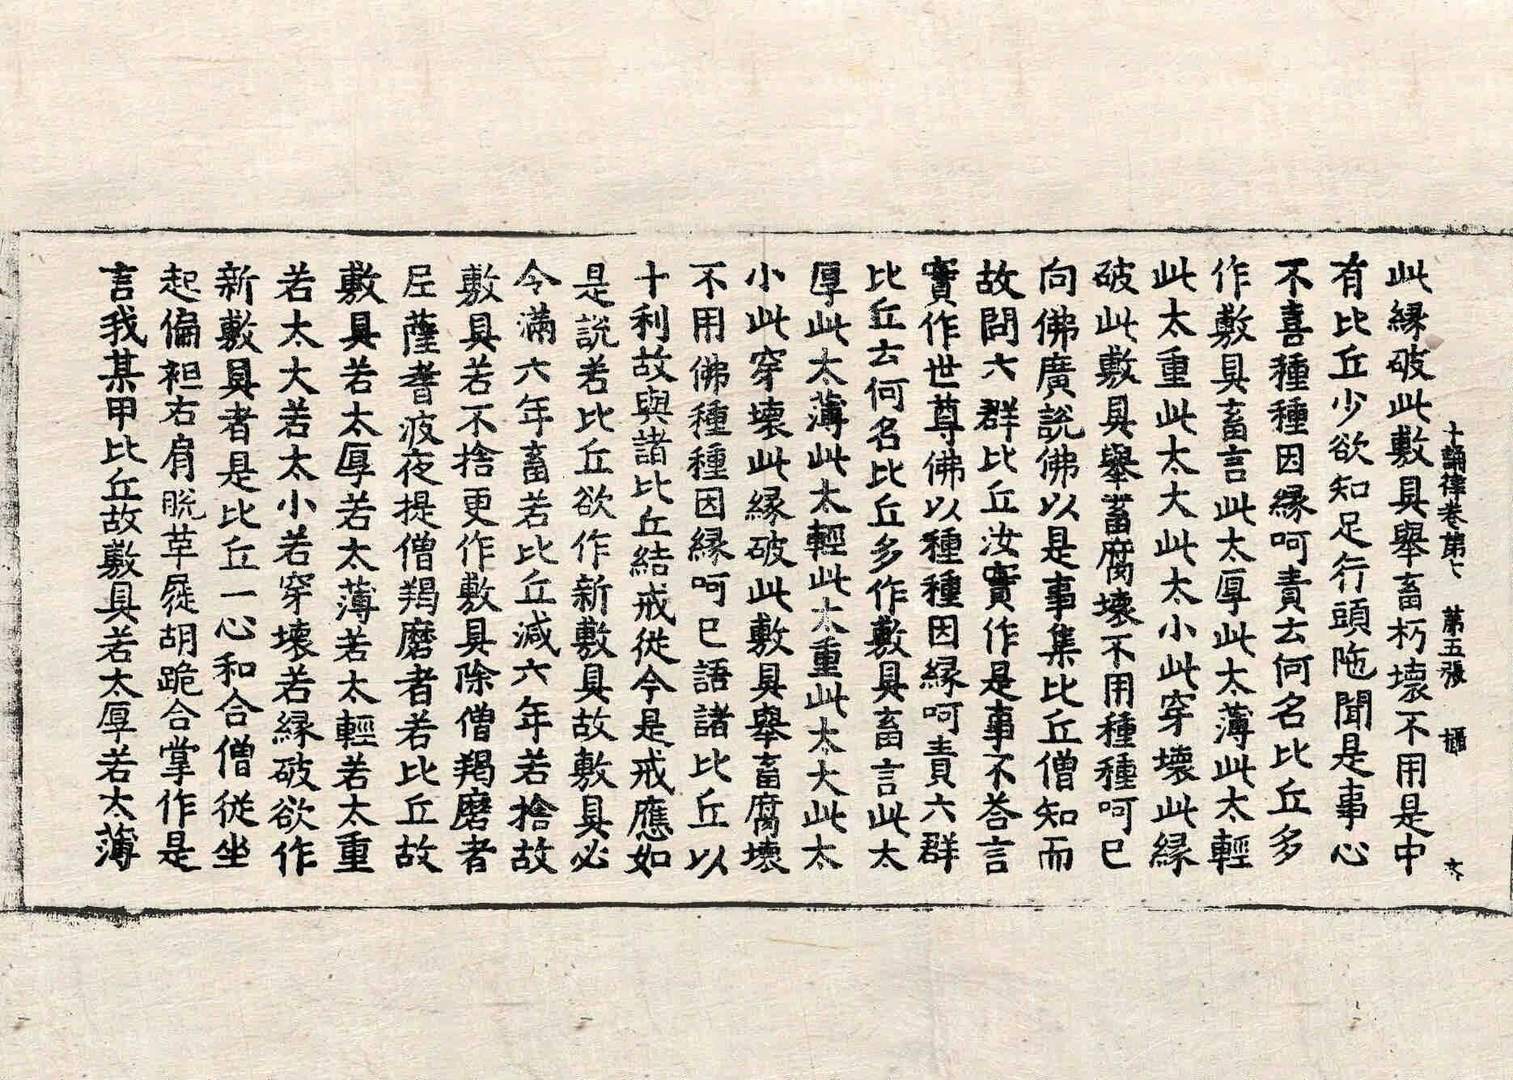 十誦律卷第七 第五張 攝
此縁破此敷具舉畜朽壞不用是中
有比丘少欲知足行頭陁聞是事心
不喜種種因縁呵責去何名比丘多
作敷具畜言此太厚此太薄此太輕
此太重此太大此太小此穿壞此縁
破此敷具舉畜腐壞不用種種呵已
向佛廣說佛以是事集比丘僧知而
故問六群比丘汝實作是事不荅言
實作世尊佛以種種因縁呵責六群
比丘去何名比丘多作敷具畜言此太
厚此太薄此太輕此太重此太大此太
小此穿壞此縁破此敷具舉畜腐壞
不用佛種種因縁呵已語諸比丘以
十利故與諸比丘結戒從今是戒應如
是說若比丘欲作新敷具故敷具必
令滿六年畜若比丘減六年若捨故
敷具若不捨更作敷具除僧羯磨者
尼薩耆波夜提僧羯磨者若比丘故
敷具若太厚若太薄若太輕若太重
若太大若太小若穿壞若縁破欲作
新敷具者是比丘一心和合僧從坐
起偏袒右肩脫革屣胡跪合掌作是
言我某甲比丘故敷具若太厚若太薄